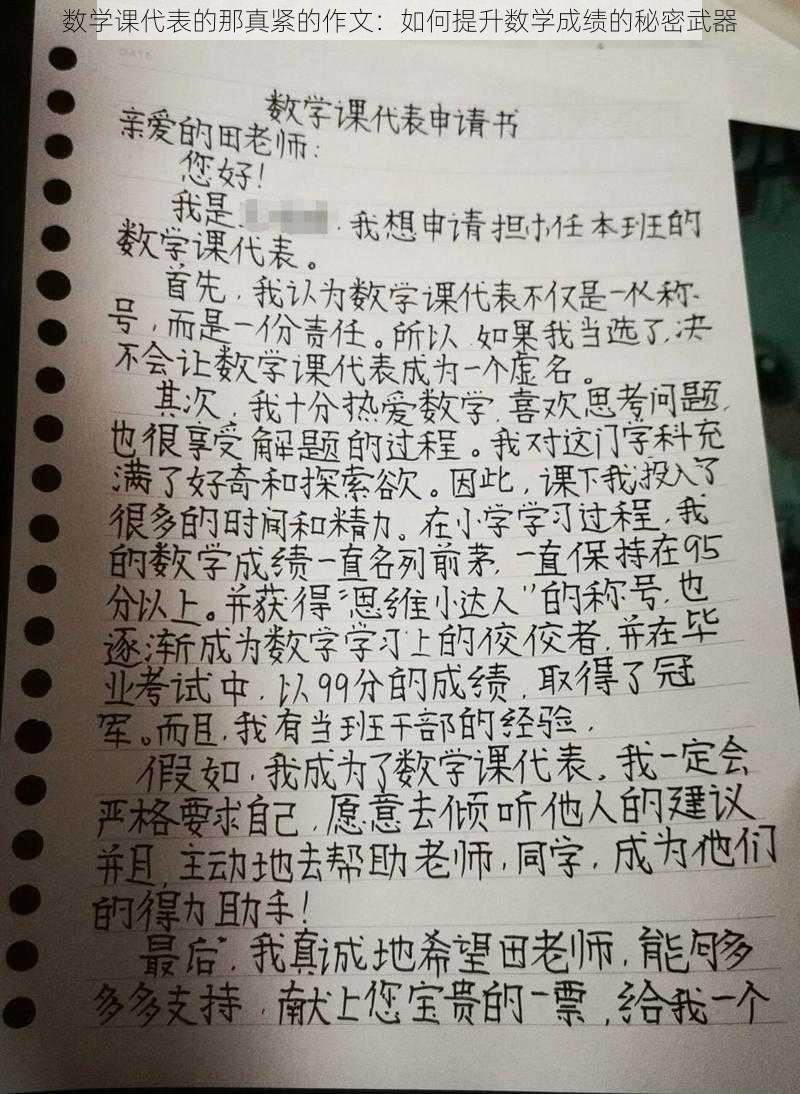 数学课代表的那真紧的作文：如何提升数学成绩的秘密武器
DATE
数学课代表申请书
亲爱的田老师：
您好！
我是 ，我想申请担任本班的
数学课代表。
首先，我认为数学课代表不仅是一个称
号，而是一份责任。所以，如果我当选了，决
不会让数学课代表成为一个虚名。
其次，我十分热爱数学，喜欢思考问题，
也很享受解题的过程。我对这门学科充
满了好奇和探索欲。因此，课下我投入了
很多的时间和精力。在小学学习过程，我
的数学成绩一直名列前茅，一直保持在95
分以上。并获得“思维小达人”的称号，也
逐渐成为数学学习上的佼佼者，并在毕
业考试中，以99分的成绩，取得了冠
军。而且，我有当班干部的经验，
假如，我成为了数学课代表。我一定会
严格要求自己，愿意去倾听他人的建议
并且，主动地去帮助老师，同学，成为他们
的得力助手！
最后，我真诚地希望田老师，能够多
多多支持，献上您宝贵的一票，给我一个